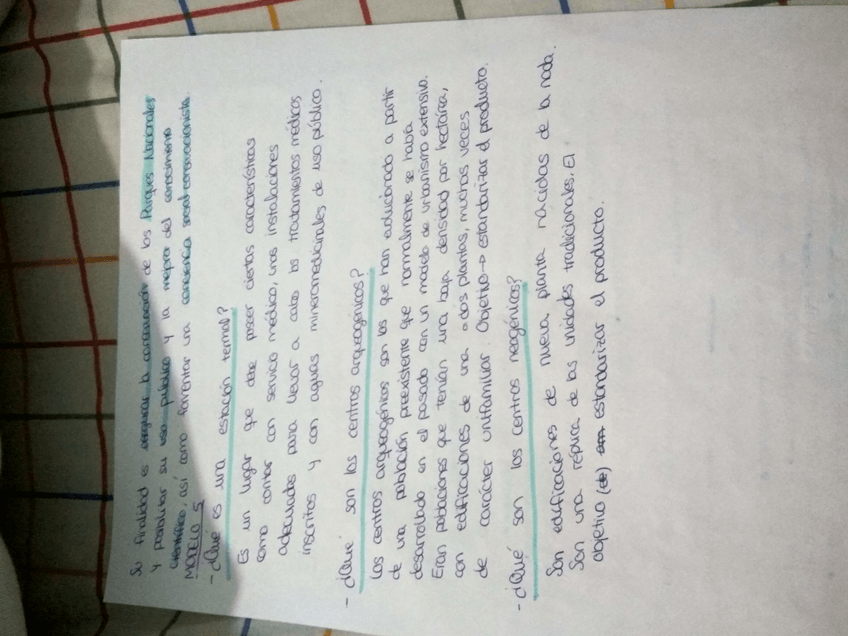 Su finalidad es asegurar la conservación de los Parques Nacionales
y posibilitar su uso público y la mejora del conocimiento
científico, así como fomentar una conciencia social conservacionista.
MODELO 5
- ¿Qué es una estación termal?
Es un lugar que debe poseer ciertas características
como contar con servicio médico, unas instalaciones
adecuadas para llevar a cabo los tratamientos médicos
inscritos y con aguas mineromedicinales de uso público.
- ¿Qué son los centros arqueogénicos?
Los centros arqueogénicos son los que han evolucionado a partir
de una población preexistente que normalmente se había
desarrollado en el pasado con un modelo de urbanismo extensivo.
Eran poblaciones que tenían una baja densidad por hectárea,
con edificaciones de una o dos plantas, muchas veces
de carácter unifamiliar. Objetivo → estandarizar el producto.
- ¿Qué son los centros neogénicos?
Son edificaciones de nueva planta nacidas de la nada.
Son una réplica de las unidades tradicionales. El
objetivo (de) estandarizar el producto.